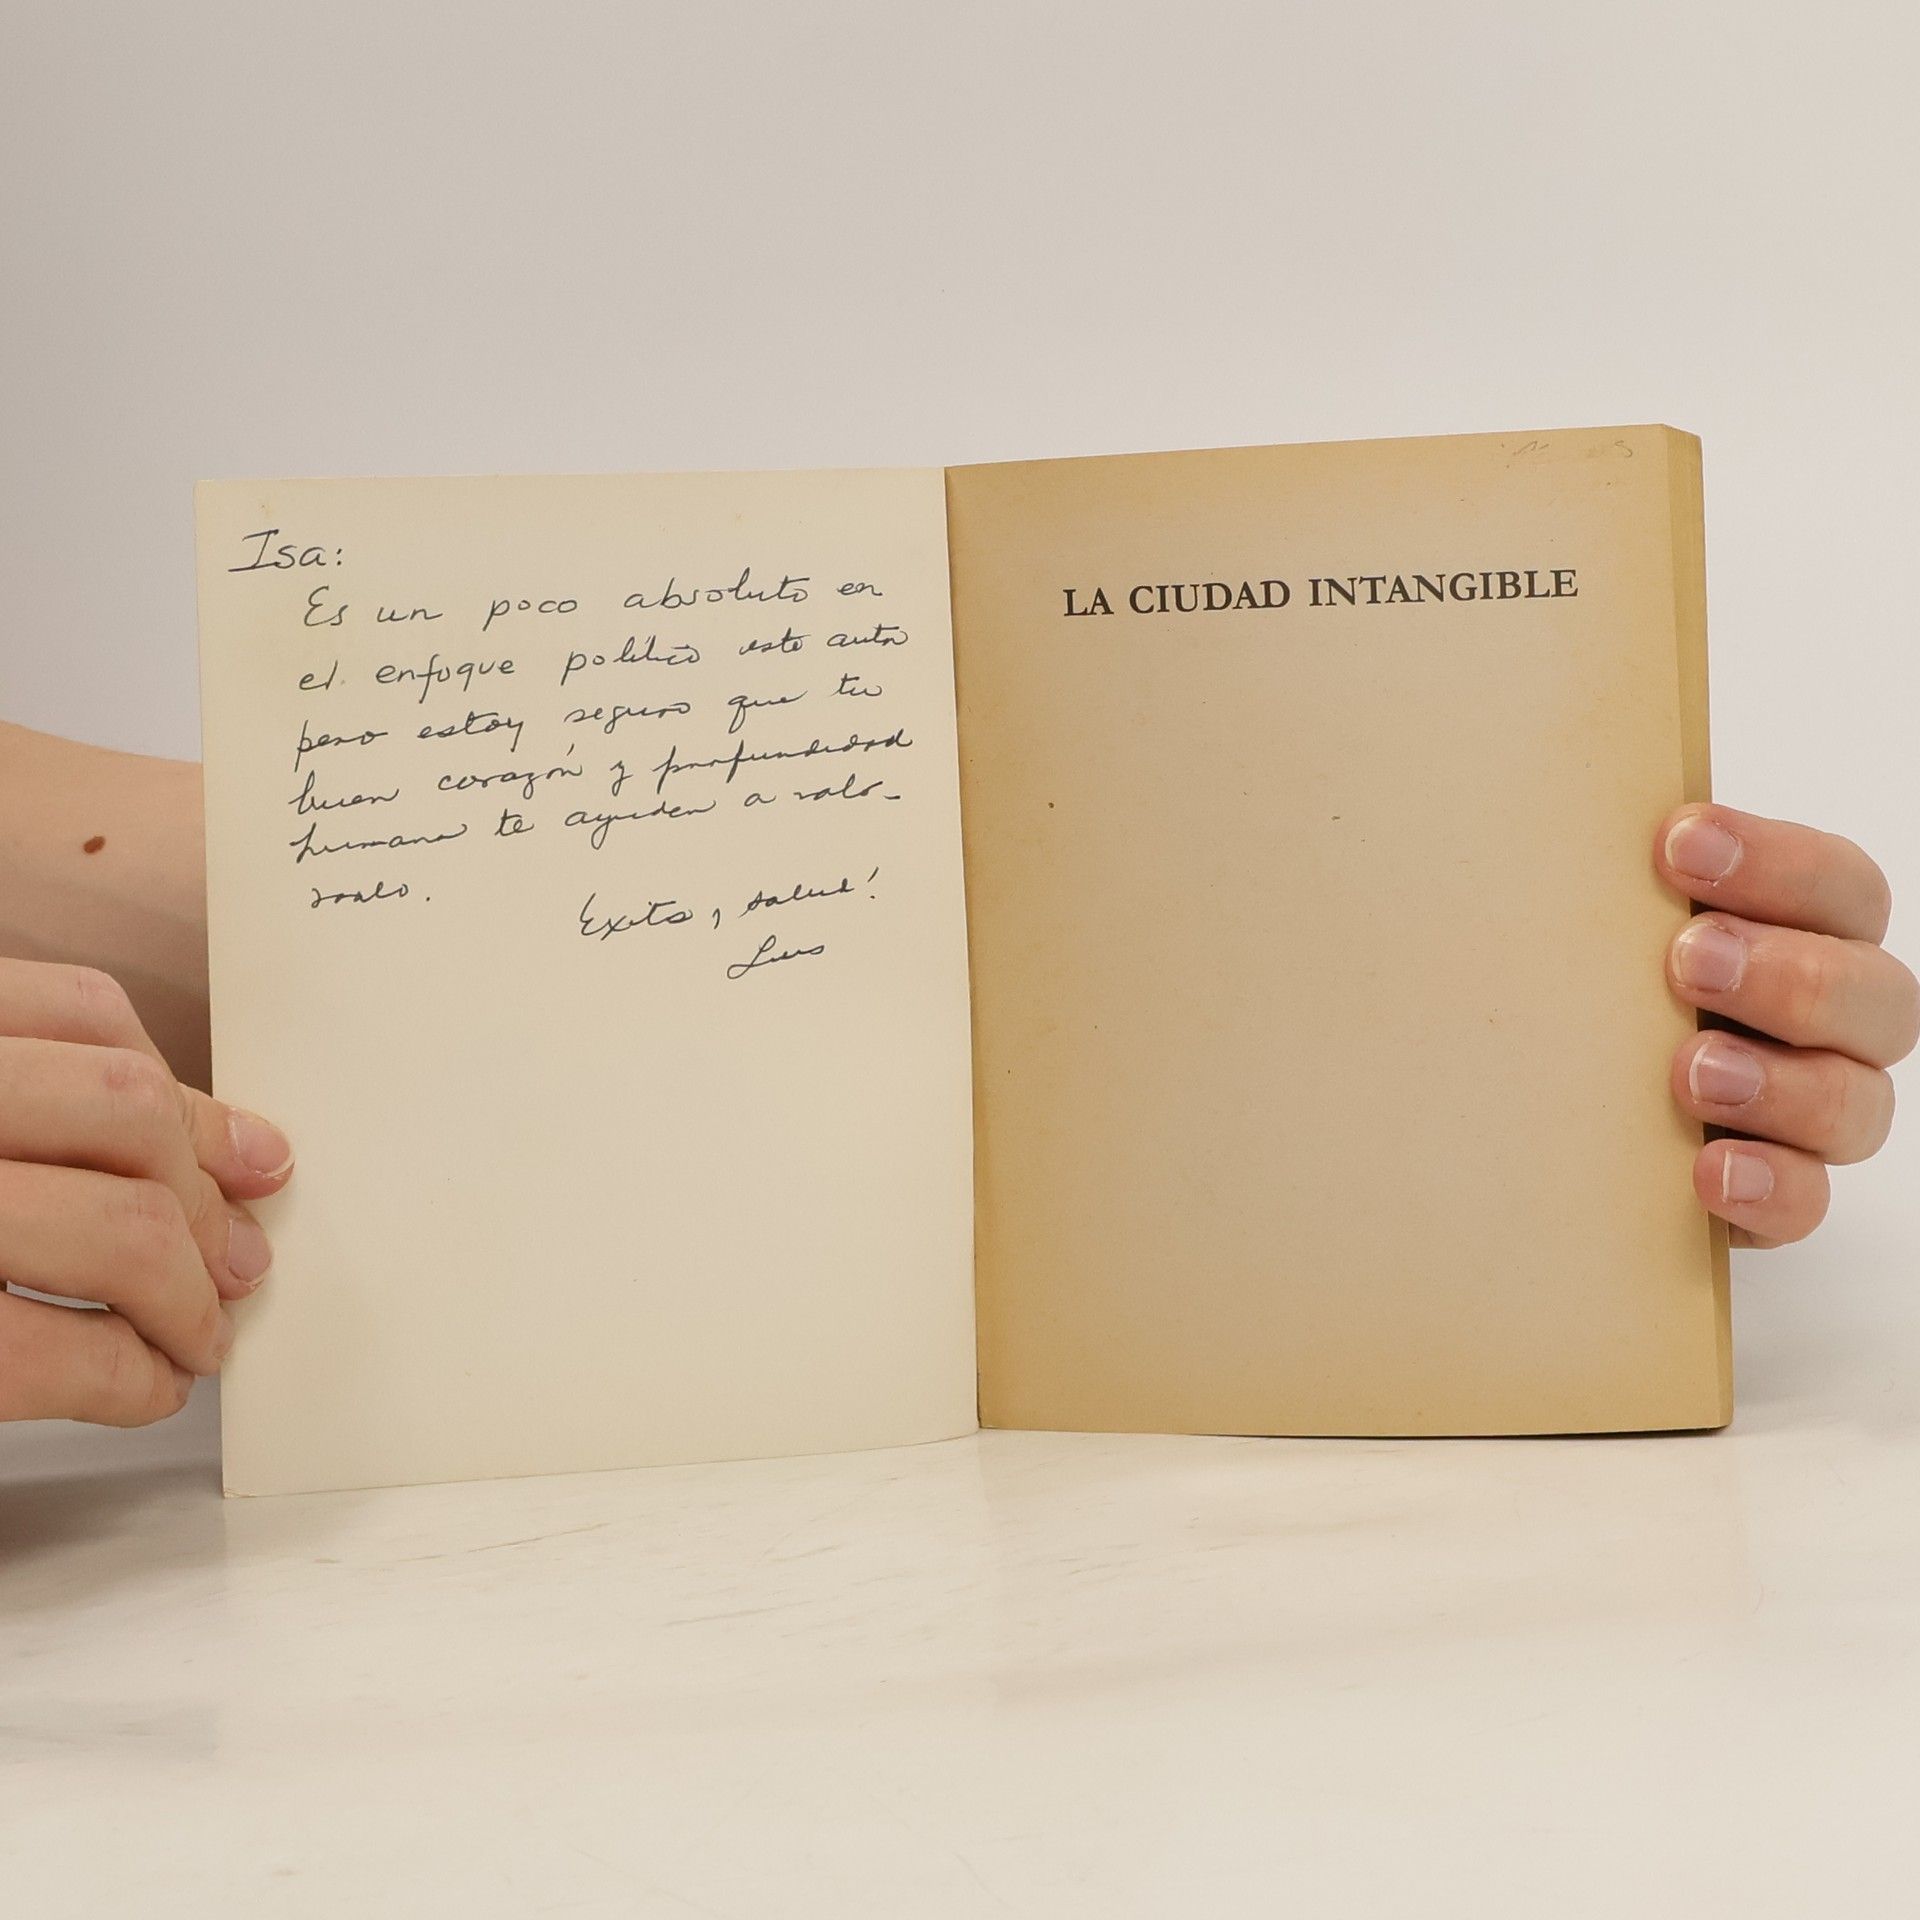 Isa:
Es un poco absoluto en
el enfoque político este autor
pero estoy seguro que tu
buen corazón y profundidad
humana te ayuden a valo-
rarlo.
Exito, salud!
Luis
LA CIUDAD INTANGIBLE